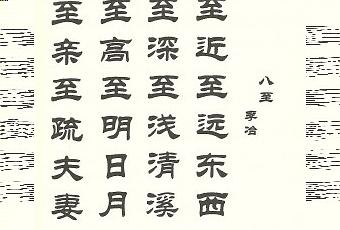 八至
李冶
至近至远东西
至深至浅清溪
至高至明日月
至亲至疏夫妻